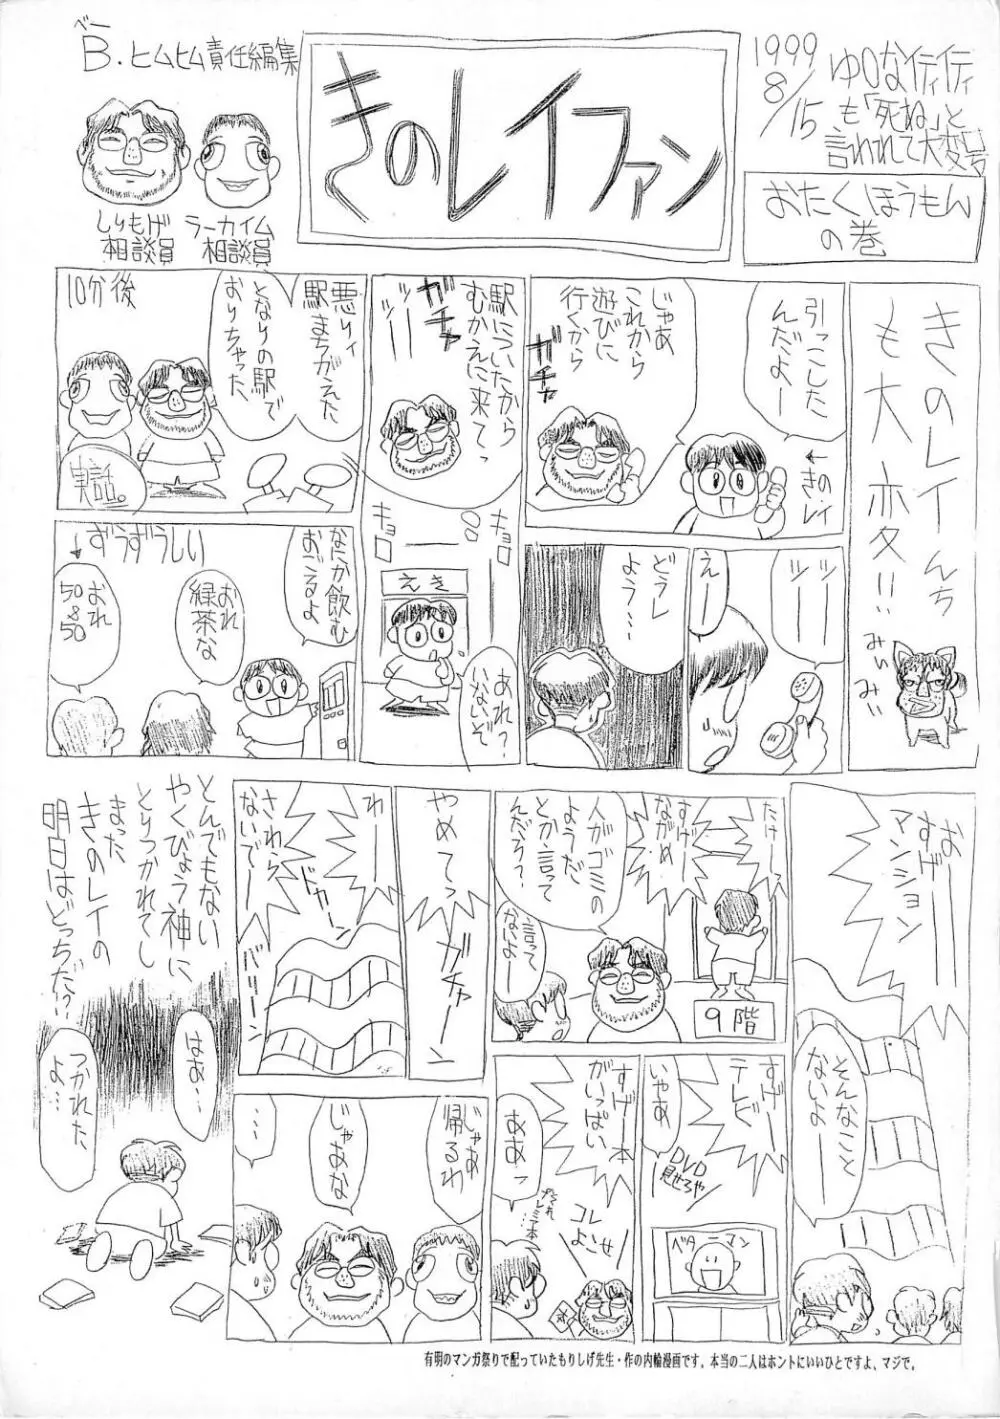 ベー
B.ヒムヒム責任編集
しりもげ
相談員
ラーカイム
相談員
きのレイファン
1999
8/15
ゆOなイティイティ
も「死ね」と
言われて大変号
おたくほうもん
の巻
きのレイんち
も大変!!
みぃみぃ
引っこした
んだよー
←きのレイ
じゃあ
これから
遊びに
行くから
ガチャ
ツーー
えー
どうし
よう…
駅についたから
むかえに来てっ
ガチャ
ツーー
キョロ
キョロ
えき
あれ?
いないぞ
10分後
悪りィ
駅まちがえた
となりの駅で
おりちゃった
実話。
なにか飲む
おごるよ
おれ
緑茶な
↓ずうずうしい
おれ
50&50
おーー
すげー
マンション
そんなこと
ないよーー
たけー
すげー
ながめ
9階
人がゴミの
ようだ
とか言って
んだろ??
言って
ないよー
すげー
テレビ
いやあ
DVD
見せろや
ベターマン
すげー本
がいっぱい
ああっ
プレミア本
コレ
よこせ
やめてっ
ガチャーン
わーー
さわら
ないでー
ドカーン
バリーン
じゃあ
帰るわ
じゃあな
…
とんでもない
やくびょう神に
とりつかれてし
まった
きのレイの
明日はどっちだ!?
はあ…
つかれた
よ…
有明のマンガ祭りで配っていたもりしげ先生・作の内輪漫画です。本当の二人はホントにいいひとですよ、マジで。